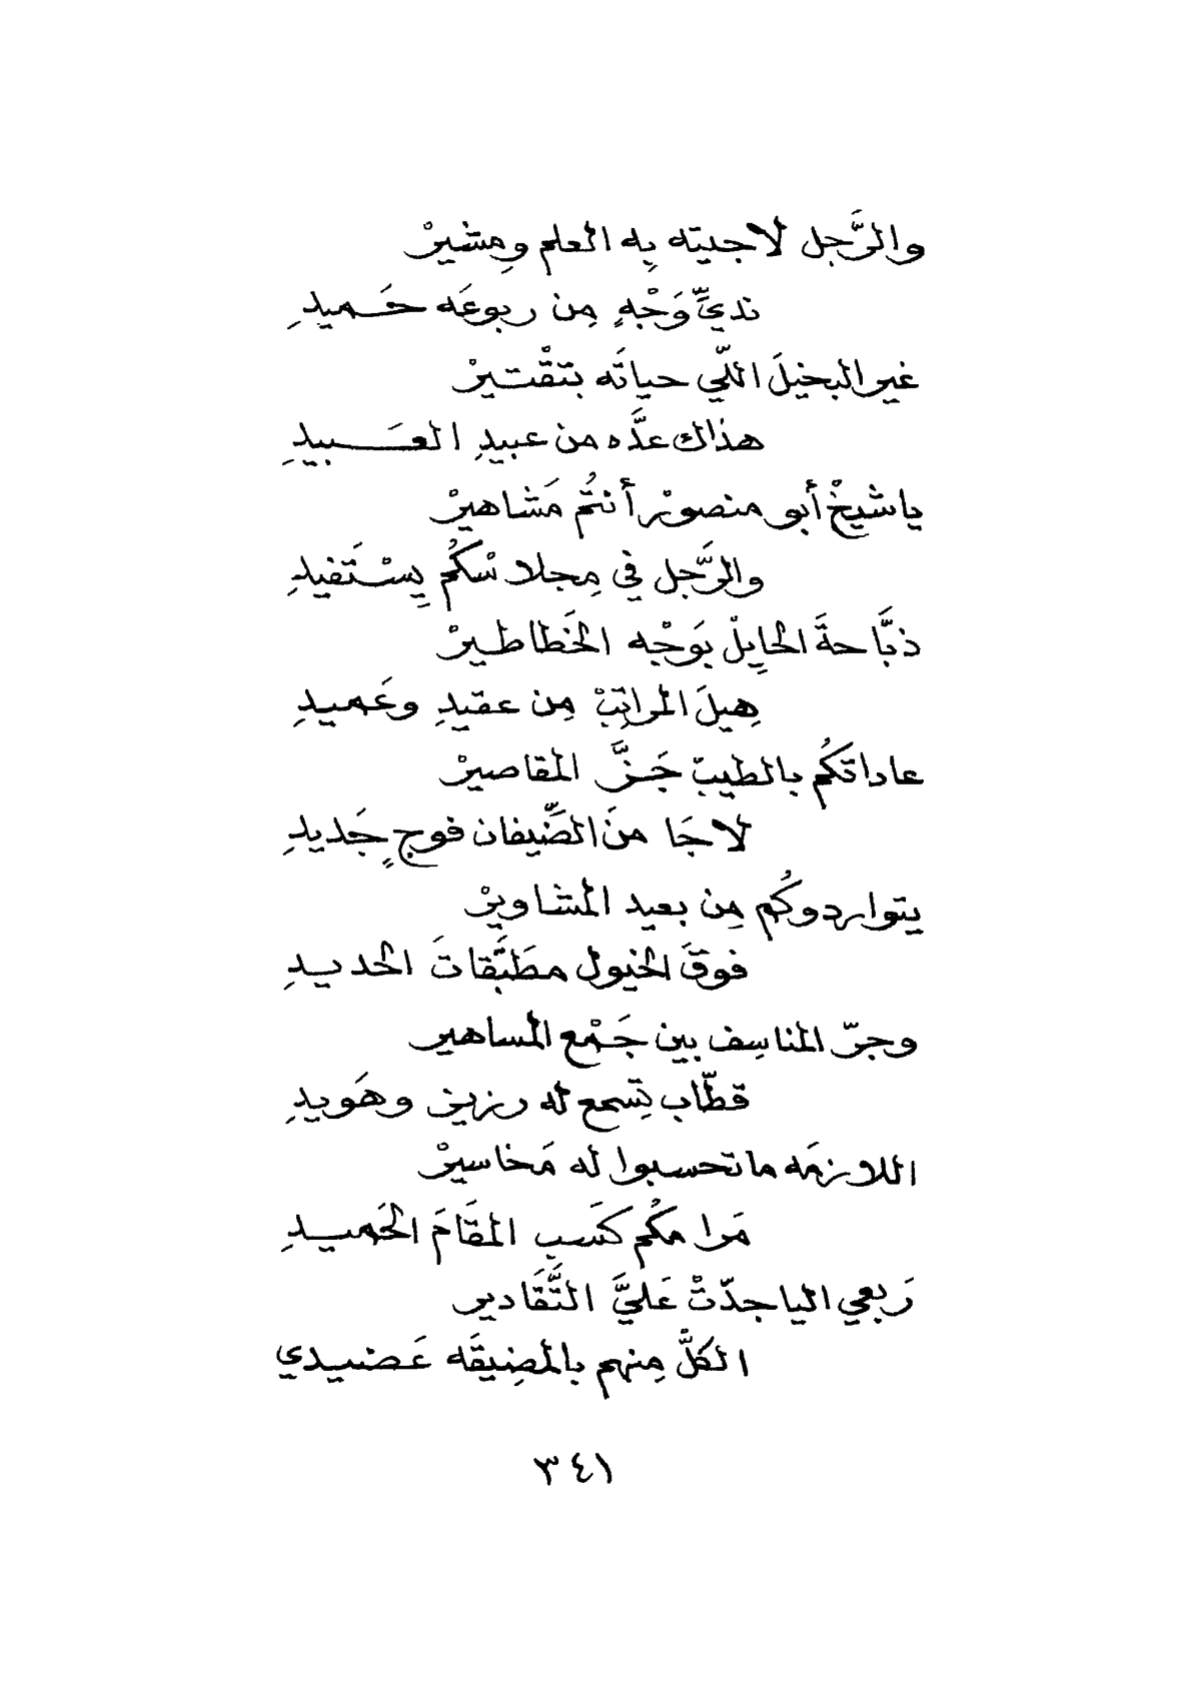 والرَّجل لاجيته بِه العلم ومِشيرْ
نديِّ وَجْهٍ مِن ربوعَه حَميدِ
غير البخيلَ اللّي حياتَه بتقْتيرْ
هذاك عدَّه من عبيدِ العَبيدِ
ياشيخْ أبو منصورْ أنتُم مَشاهيرْ
والرَّجل في مِجلاسْكُم يِسْتَفيدِ
ذبَّاحةَ الحايِلْ بوَجْه الخَطاطيرْ
هِيلَ المراتِبْ مِن عقيدِ وعَميدِ
عاداتكُم بالطيبْ جَزَّ المقاصيرْ
لاجَا منَ الضِّيفان فوجٍ جَديدِ
يتواردوكُم مِن بعيد المشاويرْ
فوقَ الخيول مطَبَّقاتَ الحديدِ
وجرّ المناسِف بين جَمْع المساهير
قطّاب تِسمع له رزينٍ وهَويدِ
اللازمَه ماتحسبوا له مَخاسيرْ
مَرامكُم كَسب المقَامَ الحَميدِ
رَبعي الياجدّتْ عَليَّ التَّقَادير
الكلَّ مِنهم بالمضِيقَه عَضيدي
٣٤١